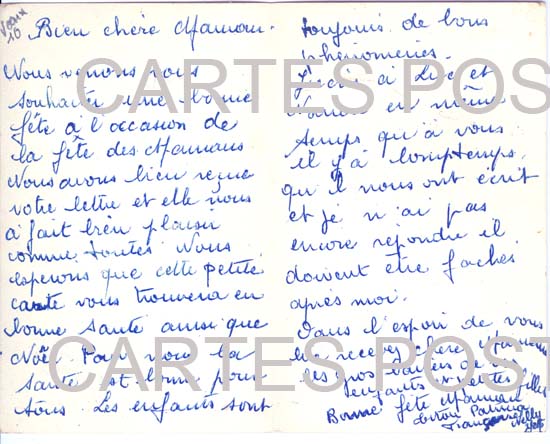 Voeux
10
Bien chère Maman.
Nous venons vous
souhaiter une bonne
fête à l'occasion de
la fête des Mamans
Nous avons bien reçue
votre lettre et elle nous
à fait bien plaisir
comme toutes Nous
esperons que cette petite
carte vous trouvera en
bonne santé ainsi que
Noë. Pour nous la
santé est bonne pour
tous. Les enfants sont
toujours de bons
phénomènes.
J'écris à Luc et
en même
temps qu'à vous
il y à lomptemps
qu'il nous ont écrit
et je n'ai pas
encore répondre il
doivent être fachés
après moi.
Dans l'espoir de vous
lire recevez chère Maman
les gros baisers de vos
enfants et petites filles
Bonne fête Maman
CARTES POST
CARTES POST